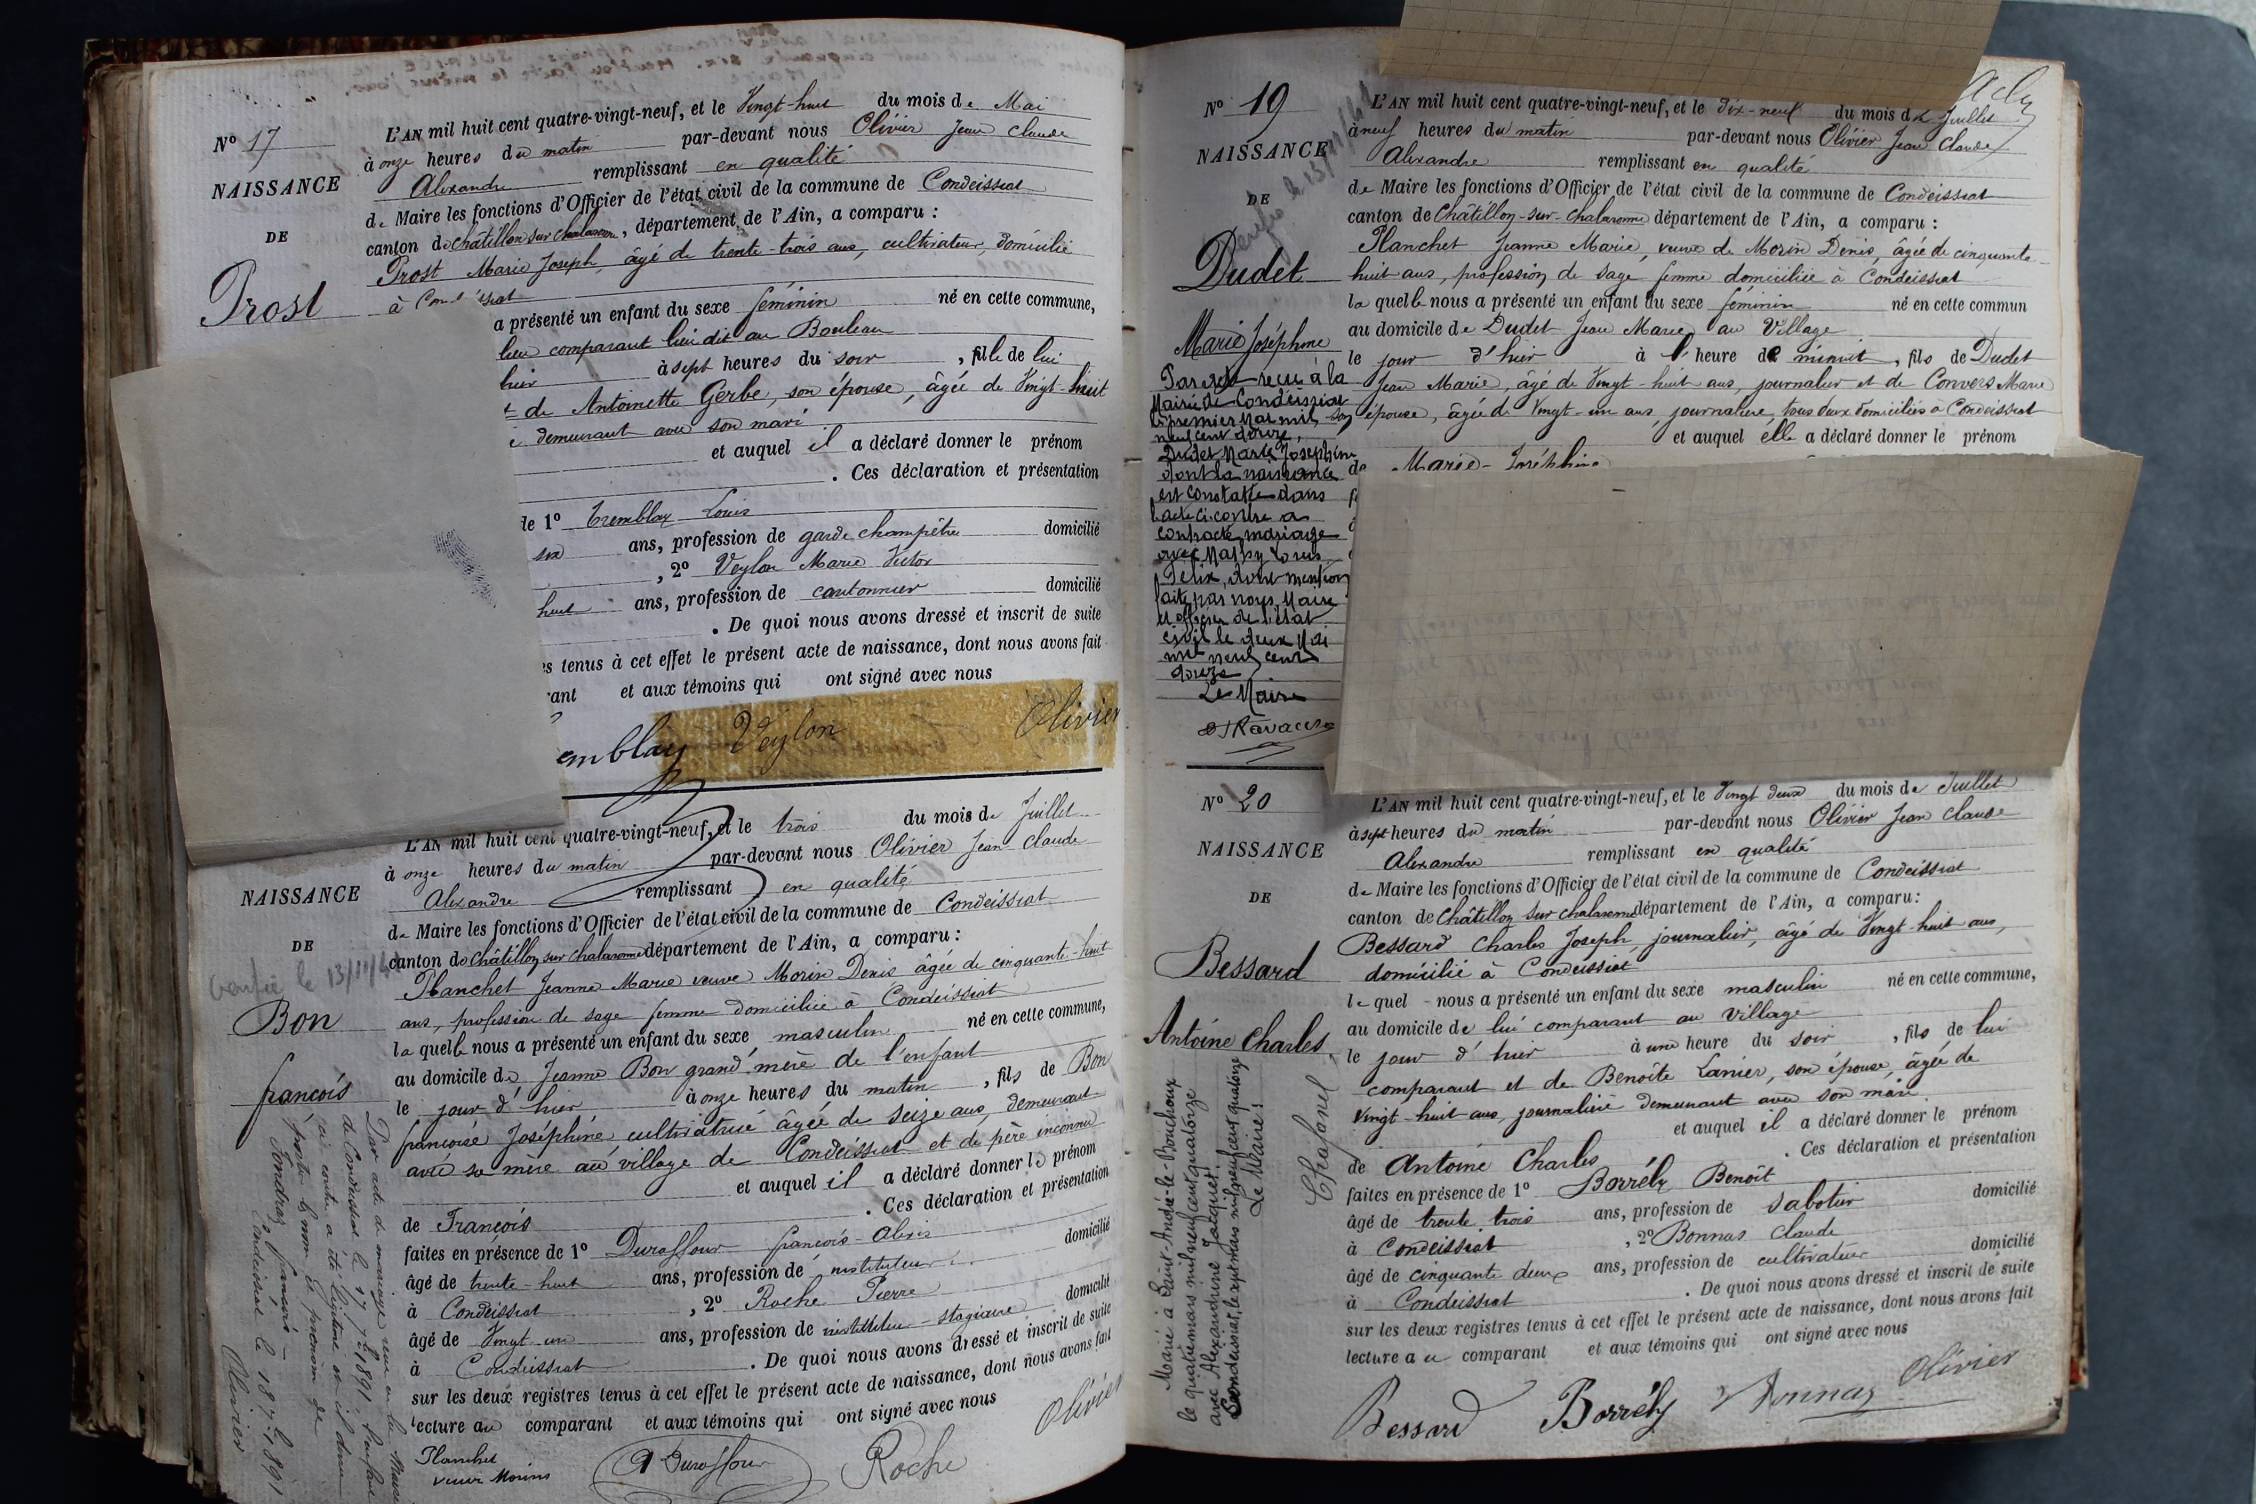 N° 17
NAISSANCE
DE
Prost
L'AN mil huit cent quatre-vingt-neuf, et le Vingt-huit du mois de Mai
à onze heures du matin par-devant nous Olivier Jean Claude
Alexandre remplissant en qualité
de Maire les fonctions d'Officier de l'état civil de la commune de Condeissiat
canton de Châtillon sur Chalaronne, département de l'Ain, a comparu :
Prost Marie Joseph, âgé de trente-trois ans, cultivateur, domicilié
à
a présenté un enfant du sexe féminin né en cette commune,
lieu comparant lieu dit au Bouleau
hier à sept heures du soir , fille de lui
et de Antoinette Gerbe, son épouse, âgée de Vingt-huit
demeurant avec son mari
et auquel il a déclaré donner le prénom
. Ces déclaration et présentation
de 1° Tremblay Louis
six ans, profession de garde champêtre domicilié
, 2° Veylon Marie Victor
huit ans, profession de cantonnier domicilié
. De quoi nous avons dressé et inscrit de suite
s tenus à cet effet le présent acte de naissance, dont nous avons fait
rant et aux témoins qui ont signé avec nous
emblay Veylon Olivier
NAISSANCE
DE
vérifié le 13/11/4
Bon
françois
L'AN mil huit cent quatre-vingt-neuf, et le trois du mois de Juillet
à onze heures du matin par-devant nous Olivier Jean Claude
Alexandre remplissant en qualité
de Maire les fonctions d'Officier de l'état civil de la commune de Condeissiat
canton de Châtillon sur Chalaronne département de l'Ain, a comparu :
Planchet Jeanne Marie veuve Morin Denis âgée de cinquante-huit
ans, profession de sage femme domiciliée à Condeissiat
laquelle nous a présenté un enfant du sexe masculin né en cette commune,
au domicile de Jeanne Bon grand'mère de l'enfant
le jour d'hier à onze heures du matin , fils de Bon
françoise Joséphine cultivatrice âgée de seize ans, demeurant
avec sa mère au village de Condeissiat et de père inconnu
et auquel il a déclaré donner le prénom
de François . Ces déclaration et présentation
faites en présence de 1° Duraffour françois-Alexis
âgé de trente-huit ans, profession de instituteur domicilié
à Condeissiat , 2° Roche Pierre
âgé de Vingt un ans, profession de instituteur-stagiaire domicilié
à Condeissiat . De quoi nous avons dressé et inscrit de suite
sur les deux registres tenus à cet effet le présent acte de naissance, dont nous avons fait
lecture au comparant et aux témoins qui ont signé avec nous
Planchet
veuve Morin Duraffour Roche Olivier
Par acte de mariage reçu en la Mairie
de Condeissiat le 17 7bre 1891
ci contre a été légitimé
porter le nom et prénom de
françois
Condeissiat le 18 7bre 1891
Olivier
N° 19
NAISSANCE
DE
Dudet
Marie Joséphine
Par acte reçu à la
Mairie de Condeissiat
le premier Mai mil
neuf cent douze,
Dudet Marie Joséphine
dont la naissance
est constatée dans
l'acte ci-contre a
contracté mariage
avec Louis
Félix, dont mention
faite par nous, Maire
et officier de l'état
civil le deux Mai
mil neuf cent
douze
Le Maire
L'AN mil huit cent quatre-vingt-neuf, et le dix-neuf du mois de Juillet
à neuf heures du matin par-devant nous Olivier Jean Claude
Alexandre remplissant en qualité
de Maire les fonctions d'Officier de l'état civil de la commune de Condeissiat
canton de Châtillon-sur-Chalaronne département de l'Ain, a comparu :
Planchet Jeanne Marie, veuve de Morin Denis, âgée de cinquante-
huit ans, profession de sage femme domiciliée à Condeissiat
laquelle nous a présenté un enfant du sexe féminin né en cette commun
au domicile de Dudet Jean Marie au Village
le jour d'hier à l'heure de minuit , fils de Dudet
Jean Marie, âgé de Vingt-huit ans, journalier et de Convers Marie
son épouse, âgée de Vingt-un ans, journalière, tous deux domiciliés à Condeissiat
et auquel elle a déclaré donner le prénom
de Marie-Joséphine
N° 20
NAISSANCE
DE
Bessard
Antoine Charles
L'AN mil huit cent quatre-vingt-neuf, et le Vingt deux du mois de Juillet
à sept heures du matin par-devant nous Olivier Jean Claude
Alexandre remplissant en qualité
de Maire les fonctions d'Officier de l'état civil de la commune de Condeissiat
canton de Châtillon sur Chalaronne département de l'Ain, a comparu :
Bessard Charles Joseph journalier, âgé de Vingt-huit ans,
domicilié à Condeissiat
lequel nous a présenté un enfant du sexe masculin né en cette commune,
au domicile de lui comparant au village
le jour d'hier à une heure du soir , fils de lui
comparant et de Benoîte Lanier, son épouse, âgée de
Vingt-huit ans, journalière demeurant avec son mari
et auquel il a déclaré donner le prénom
de Antoine Charles . Ces déclaration et présentation
faites en présence de 1° Borrély Benoît
âgé de trente trois ans, profession de sabotier domicilié
à Condeissiat , 2° Bonnas Claude
âgé de cinquante deux ans, profession de cultivateur domicilié
à Condeissiat . De quoi nous avons dressé et inscrit de suite
sur les deux registres tenus à cet effet le présent acte de naissance, dont nous avons fait
lecture au comparant et aux témoins qui ont signé avec nous
Bessard Borrély Bonnas Olivier
Marié à Saint-André-le-Bouchoux
le quatre mars mil neuf cent quatorze
avec Alexandrine Jacquet.
Condeissiat, le sept mars mil neuf cent quatorze
Le Maire :
Chafonel